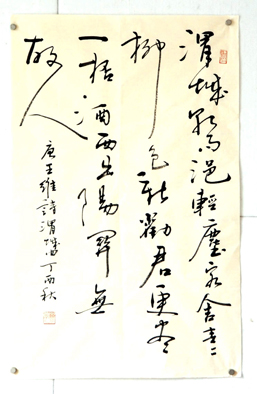 渭城朝雨浥輕塵客舍青〻
柳色新勸君更盡
一桮酒西出陽關無
故人
唐王維詩渭城曲丁酉秋